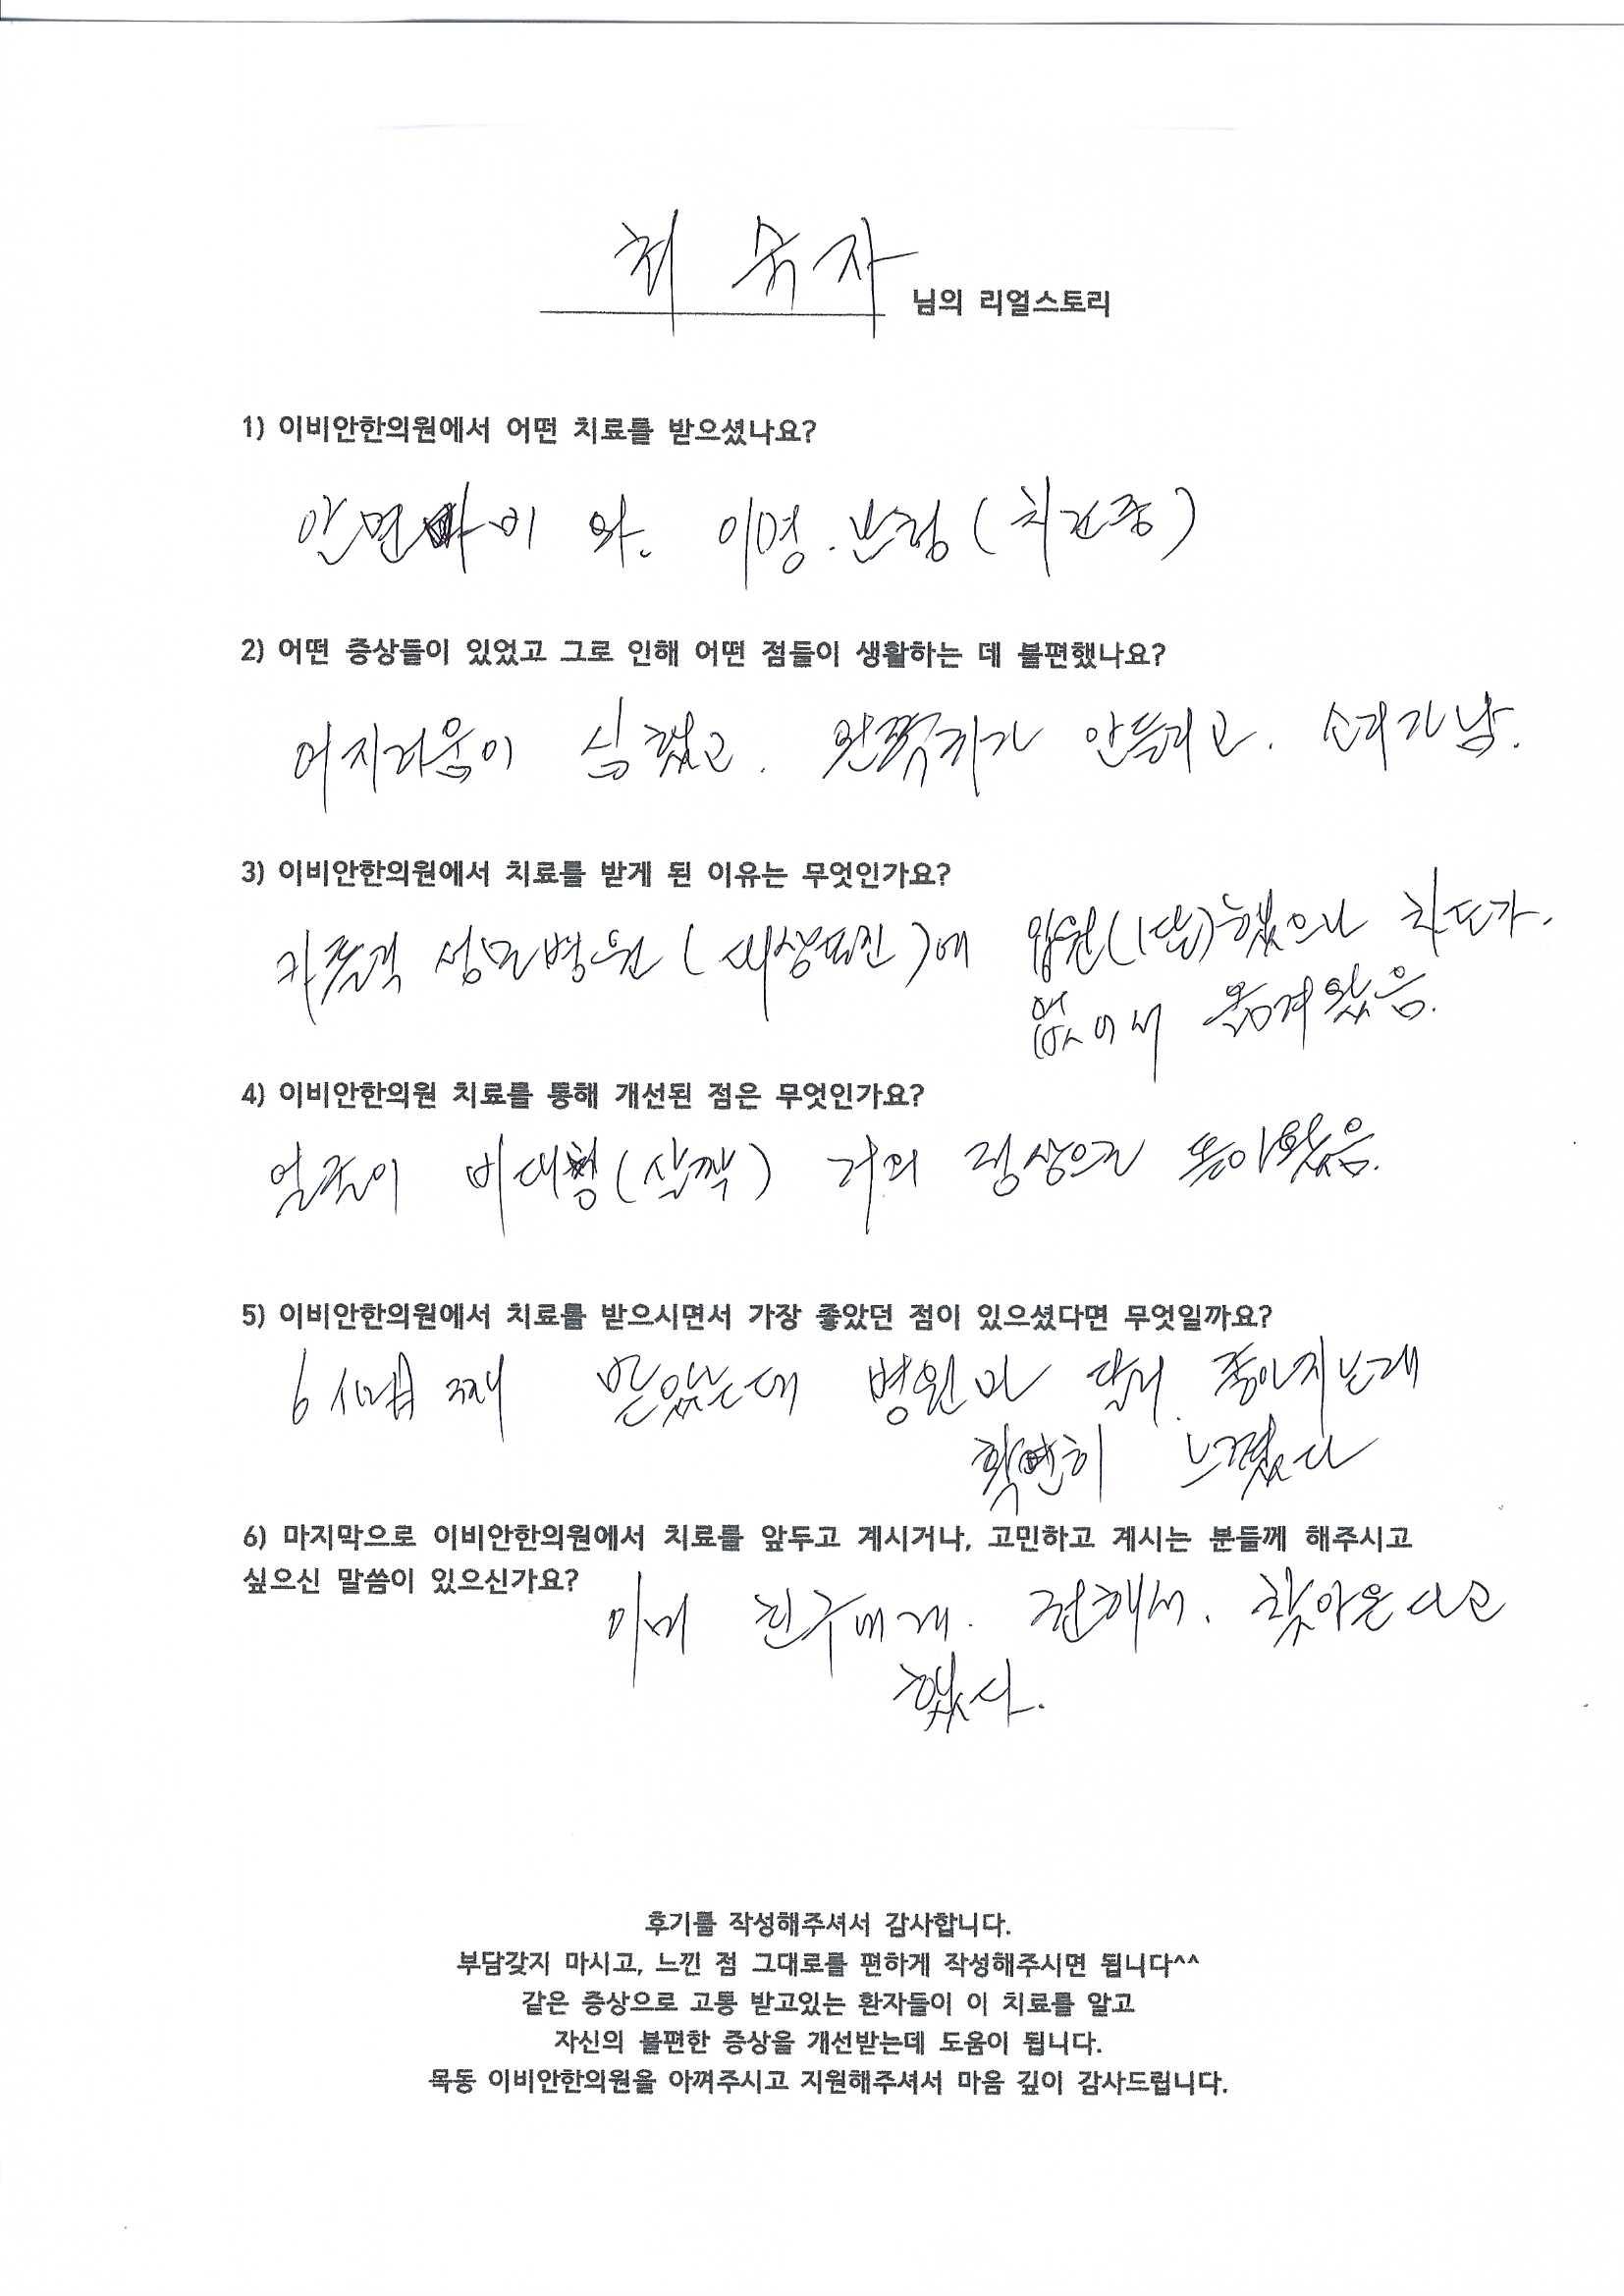 최 옥 자 님의 리얼스토리
1) 이비안한의원에서 어떤 치료를 받으셨나요?
안면마비 와. 이명. 난청 (치료중)
2) 어떤 증상들이 있었고 그로 인해 어떤 점들이 생활하는 데 불편했나요?
어지러움이 심했고. 왼쪽귀가 안들리고. 소리가남.
3) 이비안한의원에서 치료를 받게 된 이유는 무엇인가요?
카톨릭 성모병원 (대상포진)에 입원(1달)했으나 차도가.
없어서 옮겨왔음.
4) 이비안한의원 치료를 통해 개선된 점은 무엇인가요?
얼굴이 비대형(살짝) 거의 정상으로 돌아왔음.
5) 이비안한의원에서 치료를 받으시면서 가장 좋았던 점이 있으셨다면 무엇일까요?
6 째 받았는데 병원과 달리. 좋아지는게
확연히 느껴졌다
6) 마지막으로 이비안한의원에서 치료를 앞두고 계시거나, 고민하고 계시는 분들께 해주시고
싶으신 말씀이 있으신가요? 이미 친구에게. 전해서. 찾아온다고
했다.
후기를 작성해주셔서 감사합니다.
부담갖지 마시고, 느낀 점 그대로를 편하게 작성해주시면 됩니다^^
같은 증상으로 고통 받고있는 환자들이 이 치료를 알고
자신의 불편한 증상을 개선받는데 도움이 됩니다.
목동 이비안한의원을 아껴주시고 지원해주셔서 마음 깊이 감사드립니다.